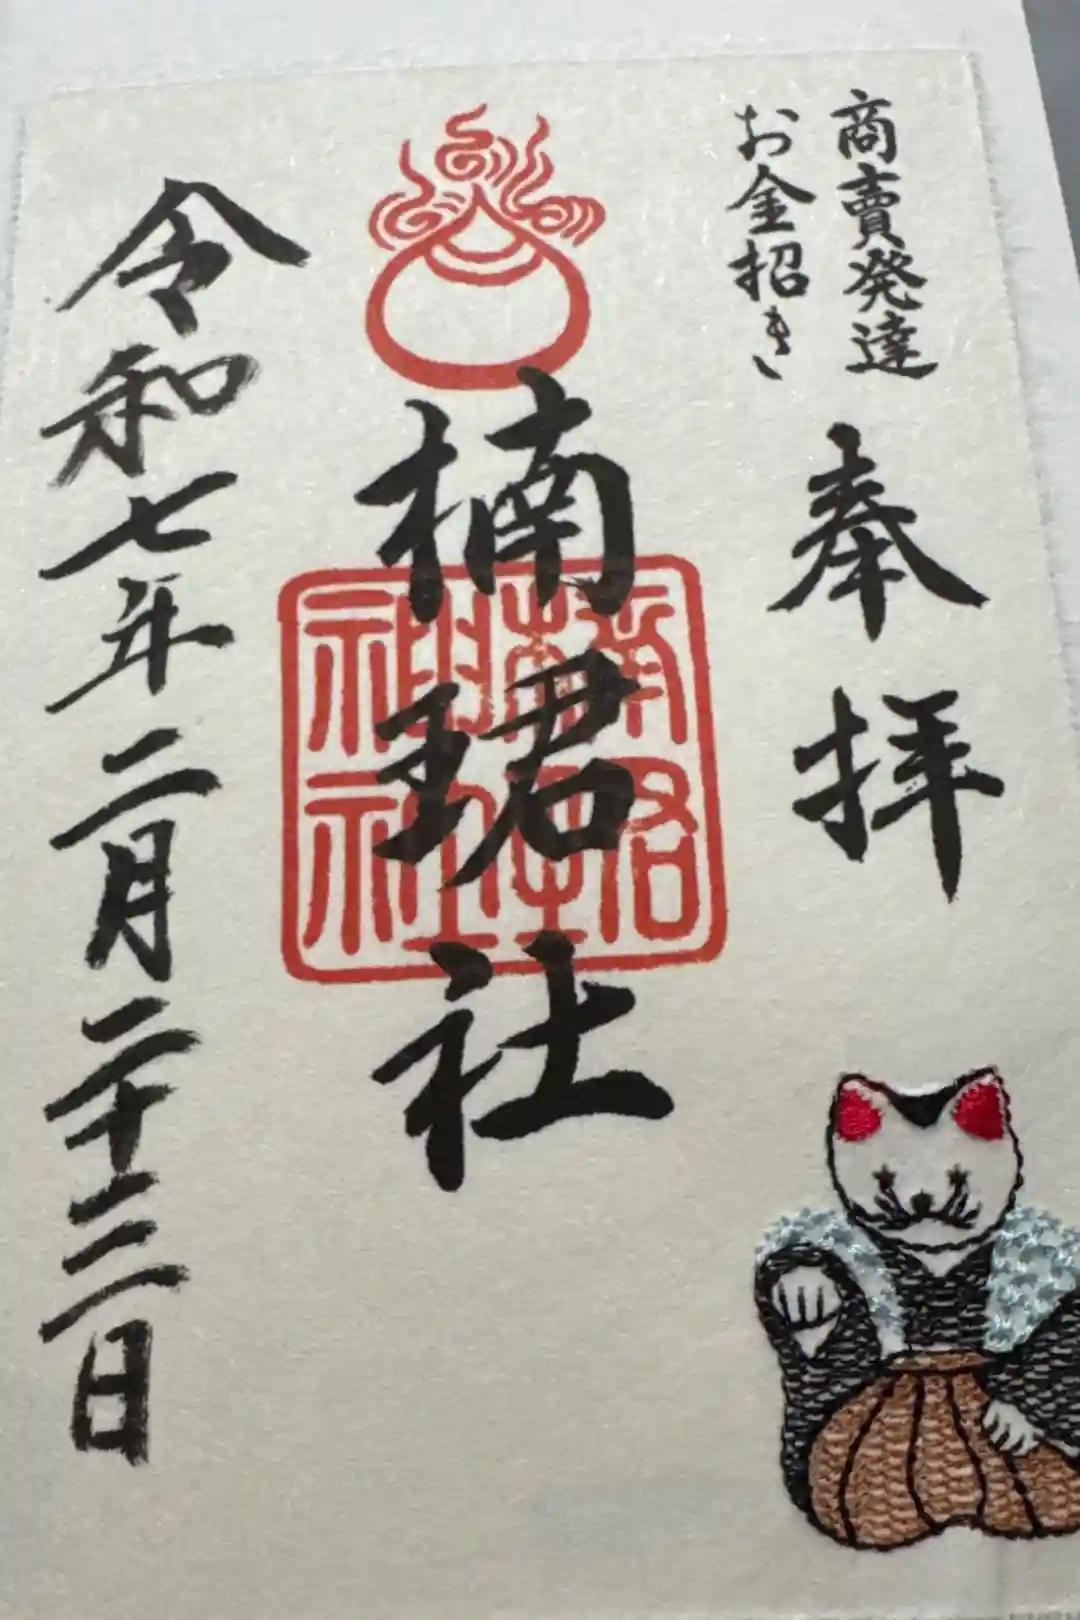 商賣発達
お金招き
奉拝
楠珺社
楠珺
神社
令和七年二月二十二日